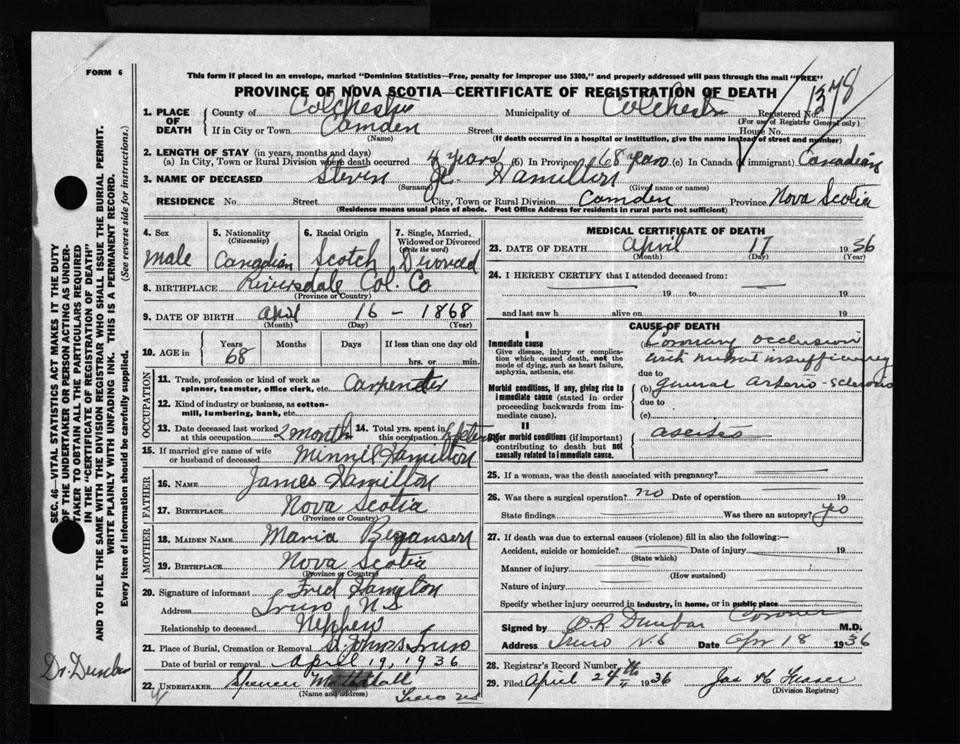 FORM 6
This form if placed in an envelope, marked "Dominion Statistics—Free, penalty for improper use $300," and properly addressed will pass through the mail "FREE"
PROVINCE OF NOVA SCOTIA—CERTIFICATE OF REGISTRATION OF DEATH
1378
1. PLACE OF DEATH County of Colchester Municipality of Colchester Registered No.
(For use of Registrar General only)
If in City or Town Camden Street House No.
(Name) (If death occurred in a hospital or institution, give the name instead of street and number)
2. LENGTH OF STAY (in years, months and days)
(a) In City, Town or Rural Division where death occurred 4 years (b) In Province 68 years (c) In Canada (if immigrant) Canadian
3. NAME OF DECEASED Steven Hamilton
(Surname) (Given name or names)
RESIDENCE No. Street City, Town or Rural Division Camden Province Nova Scotia
(Residence means usual place of abode. Post Office Address for residents in rural parts not sufficient)
4. Sex 5. Nationality (Citizenship) 6. Racial Origin 7. Single, Married, Widowed or Divorced (Write the word)
Male Canadian Scotch Divorced
8. BIRTHPLACE Riversdale Col. Co
(Province or Country)
9. DATE OF BIRTH April 16 - 1868
(Month) (Day) (Year)
10. AGE in Years Months Days If less than one day
68 hrs. or min.
OCCUPATION
11. Trade, profession or kind of work as spinner, teamster, office clerk, etc. Carpenter
12. Kind of industry or business, as cotton-mill, lumbering, bank, etc.
13. Date deceased last worked at this occupation 2 month 14. Total yrs. spent in this occupation
15. If married give name of wife or husband of deceased Minnie Hamilton
FATHER
16. NAME James Hamilton
17. BIRTHPLACE Nova Scotia
(Province or Country)
MOTHER
18. MAIDEN NAME Maria
19. BIRTHPLACE Nova Scotia
(Province or Country)
20. Signature of informant Fred Hamilton
Address Truro N.S
Relationship to deceased Nephew
21. Place of Burial, Cremation or Removal St Johns Truro
Date of burial or removal April 19, 1936
22. UNDERTAKER Spencer
(Name and address) Truro NS
MEDICAL CERTIFICATE OF DEATH
23. DATE OF DEATH April 17 1936
(Month) (Day) (Year)
24. I HEREBY CERTIFY that I attended deceased from:
19 to 19
and last saw h alive on 19
CAUSE OF DEATH
I
Immediate cause
Give disease, injury or complication which caused death, not the mode of dying, such as heart failure, asphyxia, asthenia, etc.
(a) Coronary occlusion
with mitral insufficiency
due to
Morbid conditions, if any, giving rise to immediate cause (stated in order proceeding backwards from immediate cause).
(b) general arterio-sclerosis
due to
(c)
II
Other morbid conditions (if important) contributing to death but not causally related to immediate cause.
ascites
25. If a woman, was the death associated with pregnancy?
26. Was there a surgical operation? no Date of operation 19
State findings Was there an autopsy?
27. If death was due to external causes (violence) fill in also the following:—
Accident, suicide or homicide? Date of injury 19
(State which)
Manner of injury
(How sustained)
Nature of injury
Specify whether injury occurred in industry, in home, or in public place
Signed by W.R. Dunbar Coroner M.D.
Address Truro N.S Date Apr 18 1936
28. Registrar's Record Number
29. Filed April 24th 1936 Jas
(Division Registrar)
SEC. 46—VITAL STATISTICS ACT MAKES IT THE DUTY
OF THE UNDERTAKER OR PERSON ACTING AS UNDER-
TAKER TO OBTAIN ALL THE PARTICULARS REQUIRED
IN THE "CERTIFICATE OF REGISTRATION OF DEATH"
AND TO FILE THE SAME WITH THE DIVISION REGISTRAR WHO SHALL ISSUE THE BURIAL PERMIT.
WRITE PLAINLY WITH UNFADING INK. THIS IS A PERMANENT RECORD.
Every item of information should be carefully supplied. (See reverse side for instructions.)
Dr Dunbar